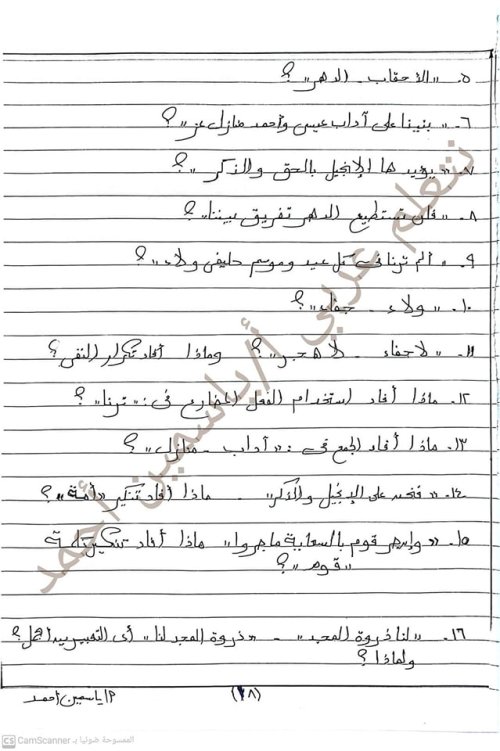 ٥. «الأحقاب - الدهر»؟
٦. «بنينا على آداب عيسى وأحمد منازل عز»؟
٧. «يؤيدها الإنجيل بالحق والذكر»؟
٨. «فلن تستطيع الدهر تفريق بيننا»؟
٩. «ألم ترنا فى كل عيد وموسم حليفى ولاء»؟
١٠. «ولاء - جفاء»؟
١١. «لاجفاء - لا هجر»؟ وماذا أفاد تكرار النفى؟
١٢. ماذا أفاد استخدام الفعل المضارع فى: «ترنا»؟
١٣. ماذا أفاد الجمع فى: «آداب - منازل»؟
١٤. على الإنجيل والذكر - ماذا أفاد تنكير «أمة»؟
١٥. «وإن قوم بالسعاية ماجروا» ماذا أفاد تنكير كلمة
«قوم»؟
١٦. «لنا ذروة المجد» - «ذروة المجد لنا» أى التعبيرين أجمل؟
ولماذا؟
نتعلم عربي أ/ ياسمين أحمد
(١٨)
أ/ ياسمين أحمد
CS CamScanner الممسوحة ضوئيا بـ